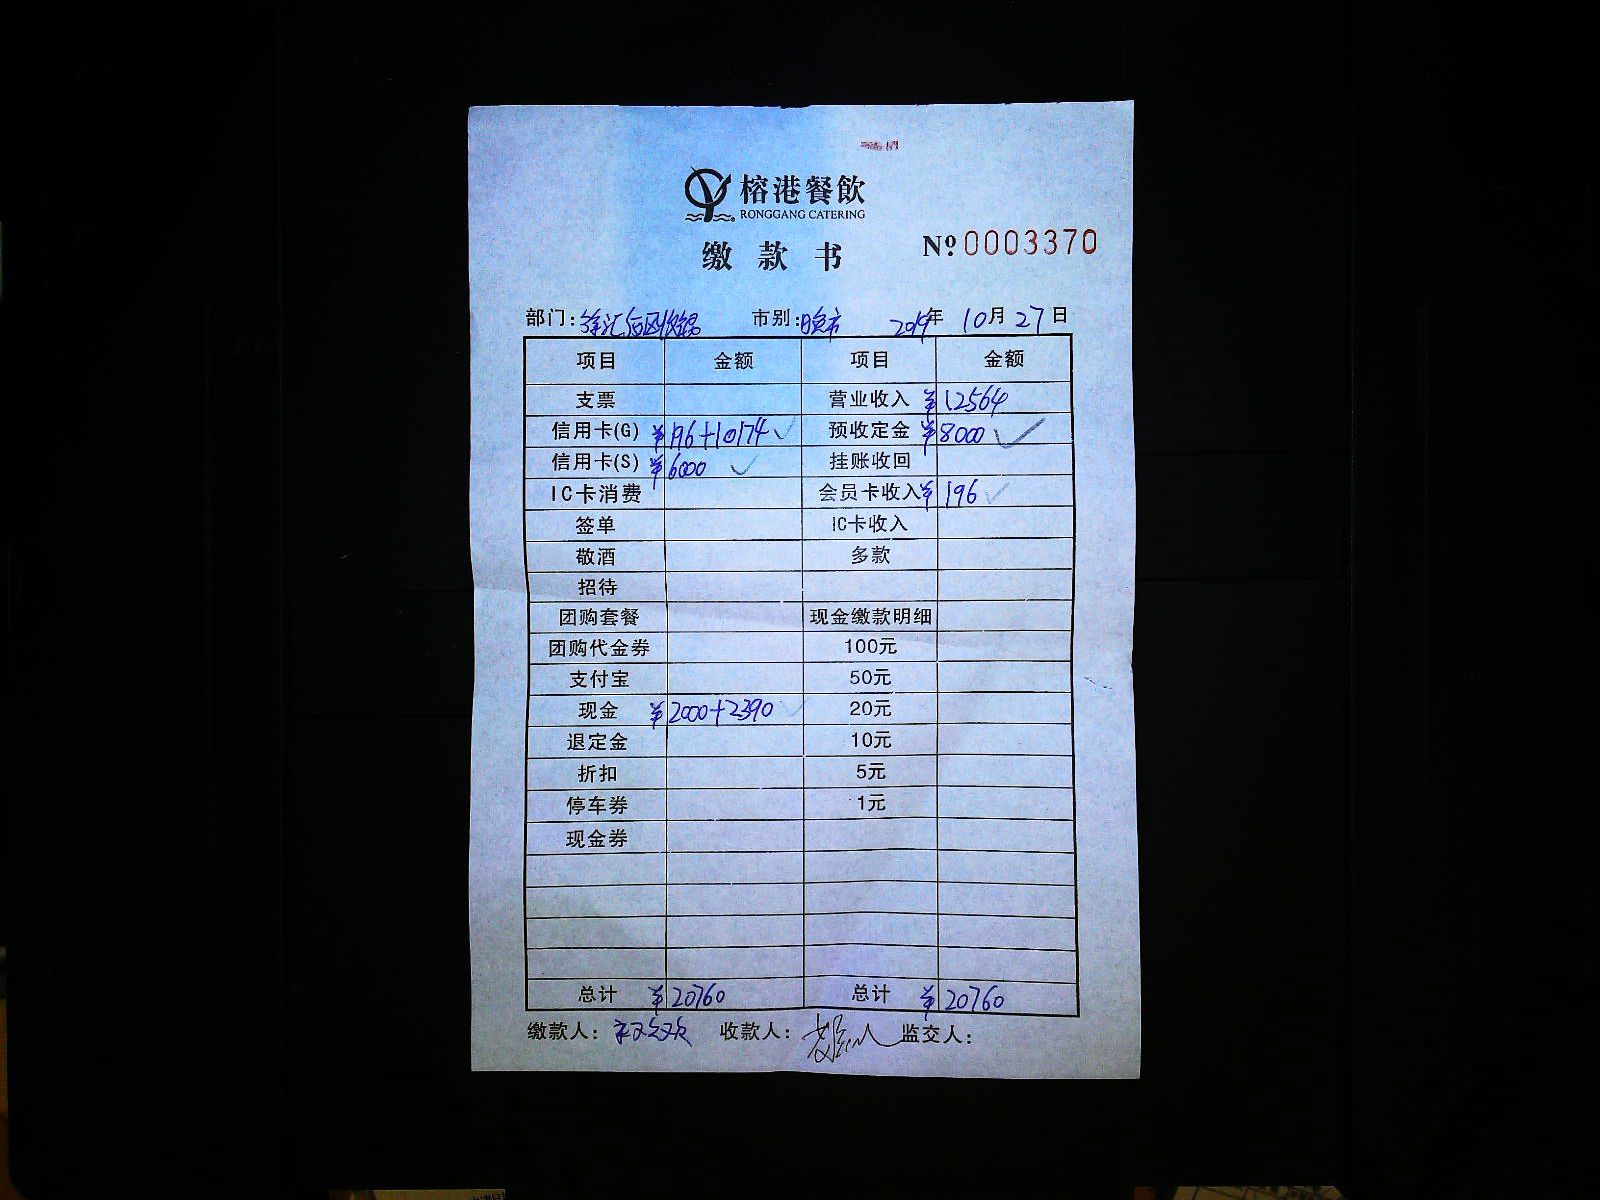 榕港餐飲
RONGGANG CATERING
缴款书
№ 0003370
部门: 徐汇 市别: 晚市 2019年 10月 27日
项目 金额 项目 金额
支票 营业收入 ¥12564
信用卡(G) ¥196+10174 ✓ 预收定金 ¥8000 ✓
信用卡(S) ¥6000 ✓ 挂账收回
IC卡消费 会员卡收入 ¥196 ✓
签单 IC卡收入
敬酒 多款
招待
团购套餐 现金缴款明细
团购代金券 100元
支付宝 50元
现金 ¥2000+2390 ✓ 20元
退定金 10元
折扣 5元
停车券 1元
现金券
总计 ¥20760 总计 ¥20760
缴款人: 收款人: 监交人: